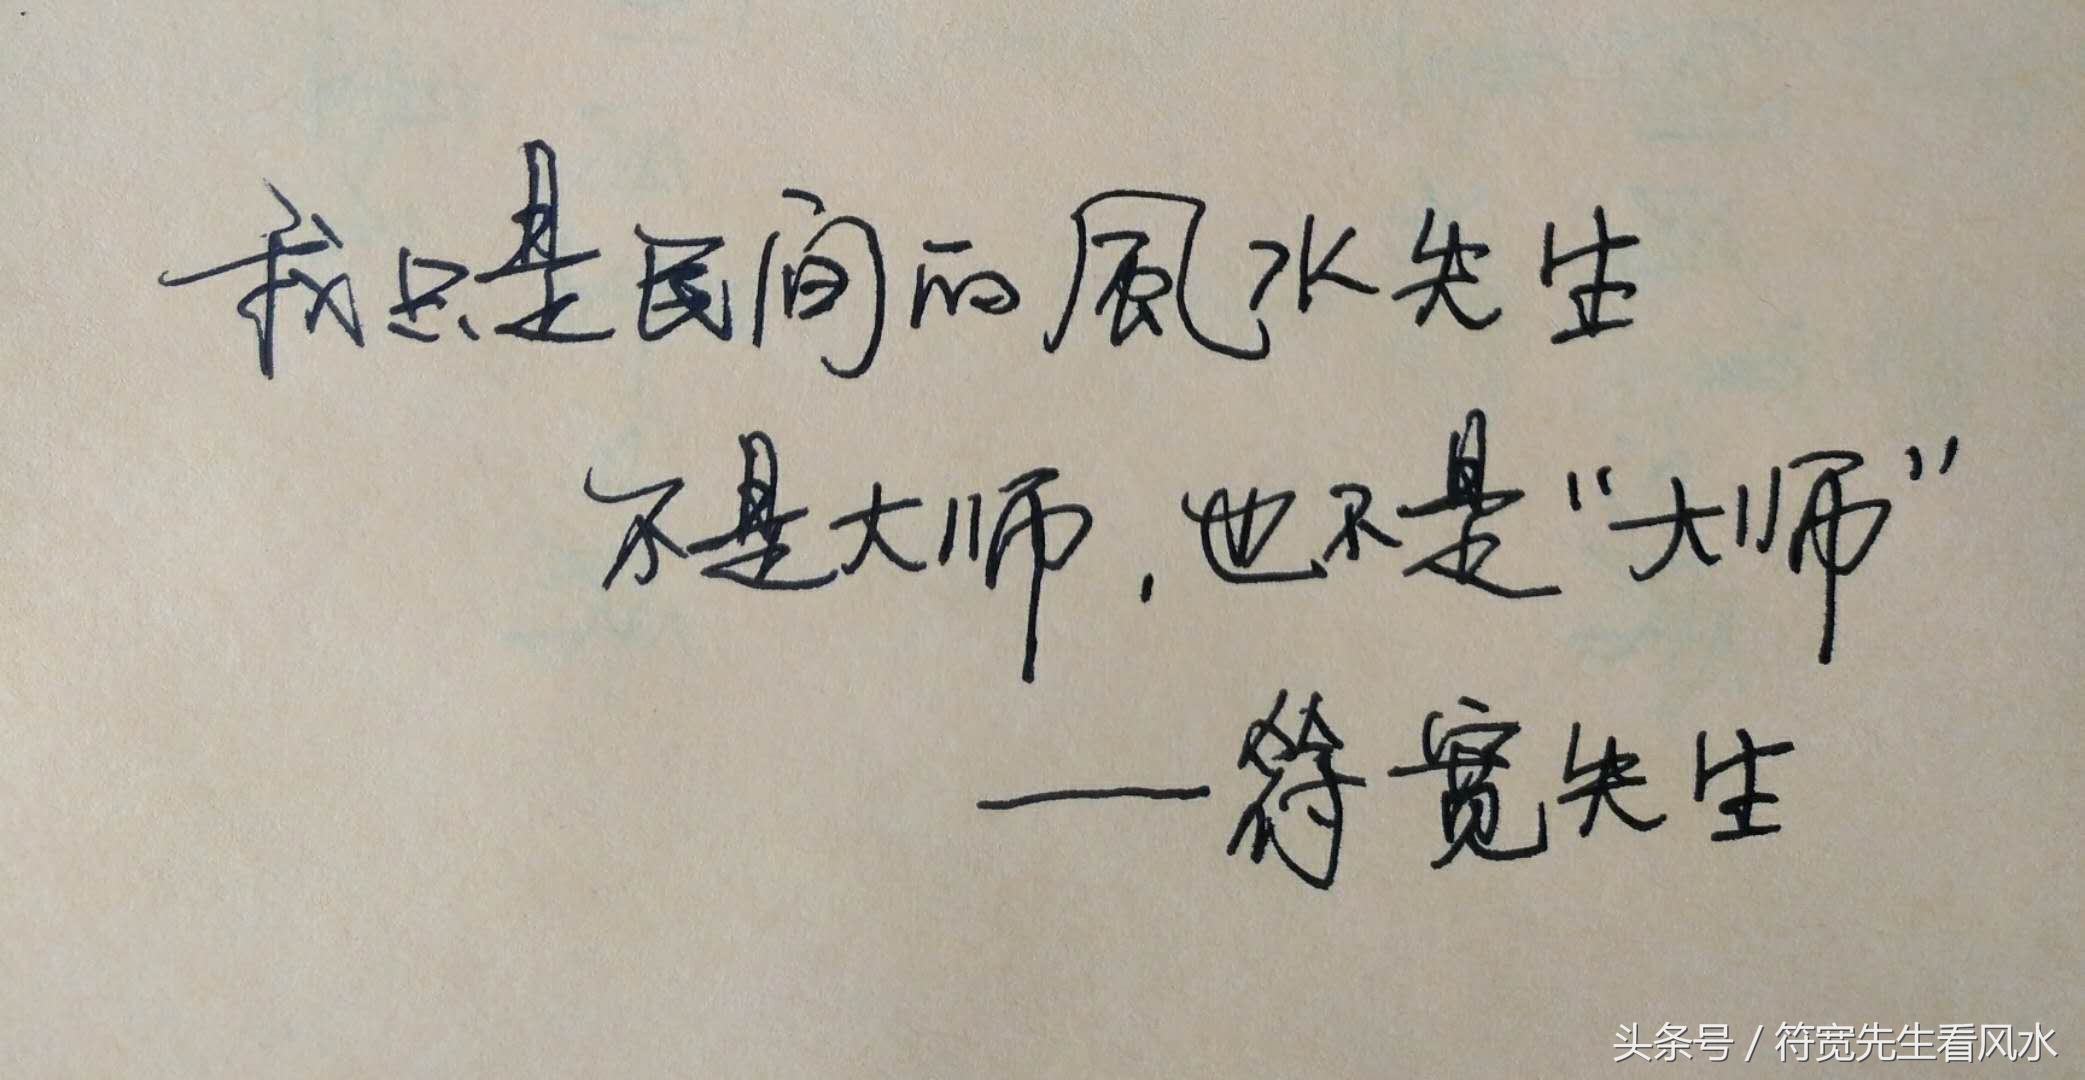 我只是民间的風水先生
不是大师,也不是“大师”
——符宽先生
头条号 / 符宽先生看风水